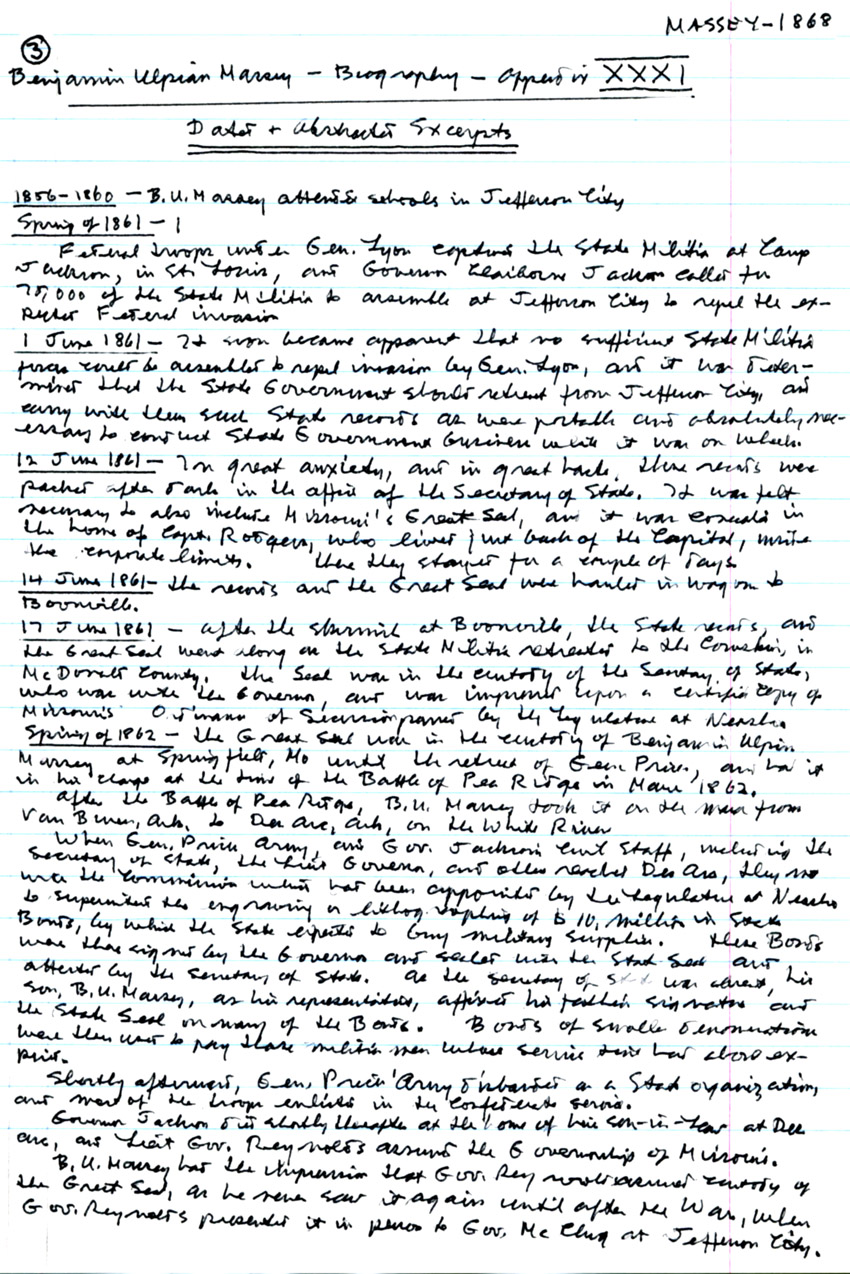 MASSEY-1868
3
Benjamin Ulpian Massey - Biography - Appendix XXXI
Dates + Abstracted Excerpts
1856-1860 - B.U. Massey attends schools in Jefferson City
Spring of 1861 - 1
Federal troops under Gen. Lyon captured the State Militia at Camp
Jackson, in St. Louis, and Governor Claiborne Jackson called for
75,000 of the State Militia to assemble at Jefferson City to repel the ex-
pected Federal invasion
1 June 1861 - It soon became apparent that no sufficient State Militia
forces could be assembled to repel invasion by Gen. Lyon, and it was deter-
mined that the State Government should retreat from Jefferson City, and
carry with them such State records as were portable and absolutely nec-
essary to conduct State Government business while it was on wheels.
12 June 1861 - In great anxiety, and in great haste, these records were
packed after dark in the office of the Secretary of State. It was felt
necessary to also include Missouri's Great Seal, and it was concealed in
the home of Capt. Rodgers, who lived just back of the Capital, inside
the corporate limits. There they stayed for a couple of days.
14 June 1861 - the records and the Great Seal were hauled in wagon to
Boonville.
17 June 1861 - after the skirmish at Boonville, the State records, and
the Great Seal went along as the State Militia retreated to the Cowskin, in
McDonald County. The Seal was in the custody of the Secretary of State,
who was with the Governor, and was impressed upon a certified copy of
Missouri's Ordinance of Secession passed by the legislature at Neosho
Spring of 1862 - the Great Seal was in the custody of Benjamin Ulpian
Massey at Springfield, Mo until the retreat of Gen. Price, and had it
in his charge at the time of the Battle of Pea Ridge in March 1862.
After the Battle of Pea Ridge, B.U. Massey took it on the march from
Van Buren, Ark. to Des Arc, Ark, on the White River
When Gen. Price's Army, and Gov. Jackson's Civil Staff, including the
Secretary of State, the Lieut Governor, and others reached Des Arc, they
met the Commission which had been appointed by the legislature at Neosho
to superintend the engraving or lithographing of $10, million in State
Bonds, by which the State expected to buy military supplies. These Bonds
were then signed by the Governor and sealed with the State Seal and
attested by the Secretary of State. As the Secretary of State was absent, his
son, B.U. Massey, as his representative, affixed his father's signature and
the State Seal on many of the Bonds. Bonds of smaller denomination
were then used to pay those militia men whose service time had ex-
pired.
Shortly afterward, Gen. Price's Army disbanded as a State organization,
and most of the troops enlisted in the Confederate service.
Governor Jackson died shortly thereafter at the home of his son-in-law at Des
Arc, and Lieut Gov. Reynolds assumed the Governorship of Missouri.
B.U. Massey has the impression that Gov. Reynolds assumed custody of
the Great Seal, as he never saw it again until after the War, when
Gov. Reynolds presented it in person to Gov. McClurg at Jefferson City.